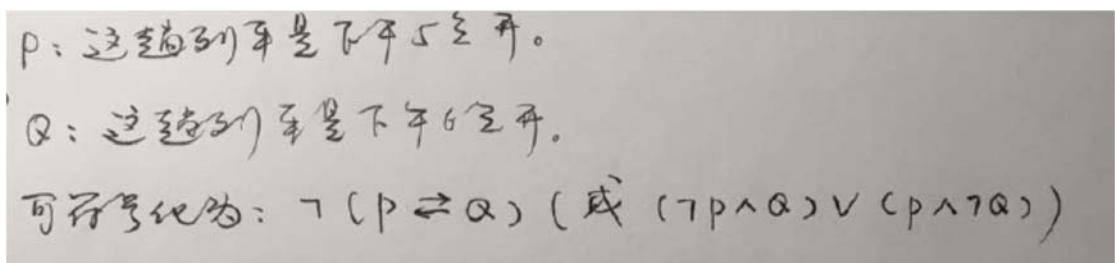 P：这趟列车是下午5点开。
Q：这趟列车是下午6点开。
可符号化为：¬(P⇄Q)(或 (¬P∧Q)∨(P∧¬Q))